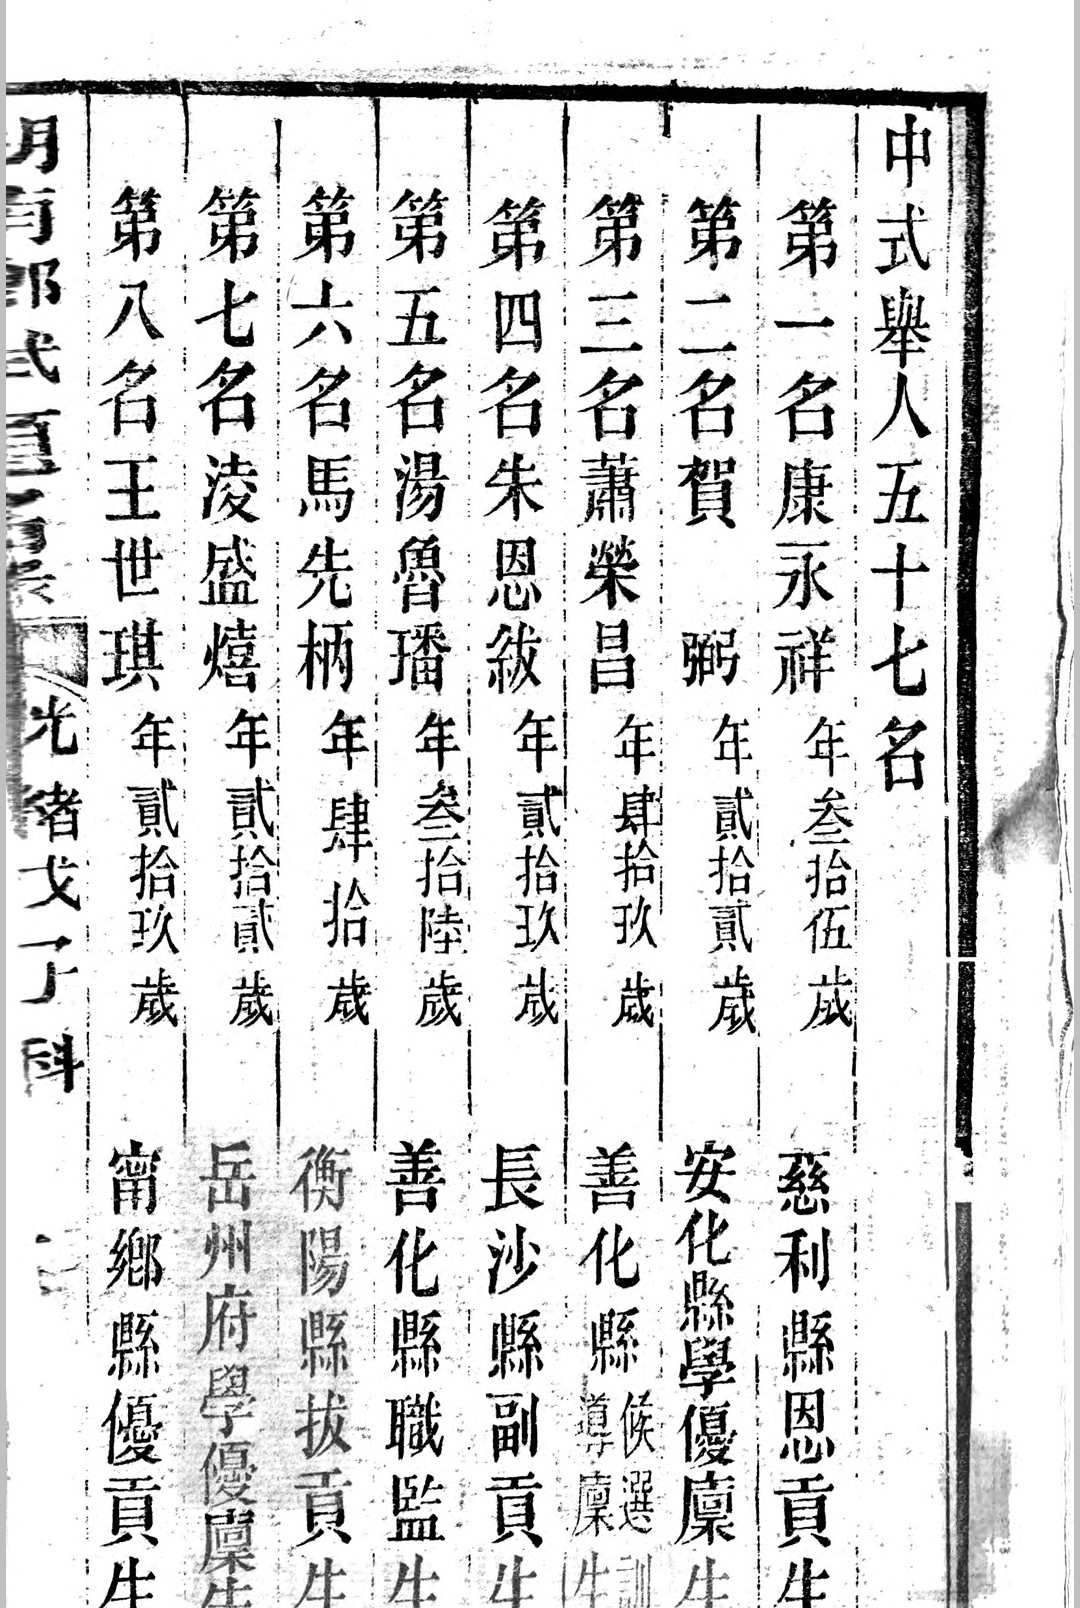 中式舉人五十七名
第一名康永祥年叁拾伍歲慈利縣恩貢生
第二名賀弼年貳拾貳歲安化縣學優廩生
第三名蕭榮昌年肆拾玖歲善化縣候選訓導廩生
第四名朱恩紱年貳拾玖歲長沙縣副貢生
第五名湯魯璠年叁拾陸歲善化縣職監生
第六名馬先柄年肆拾歲衡陽縣拔貢生
第七名淩盛熺年貳拾貳歲岳州府學優廩生
第八名王世琪年貳拾玖歲甯鄉縣優貢生
光緒戊子科